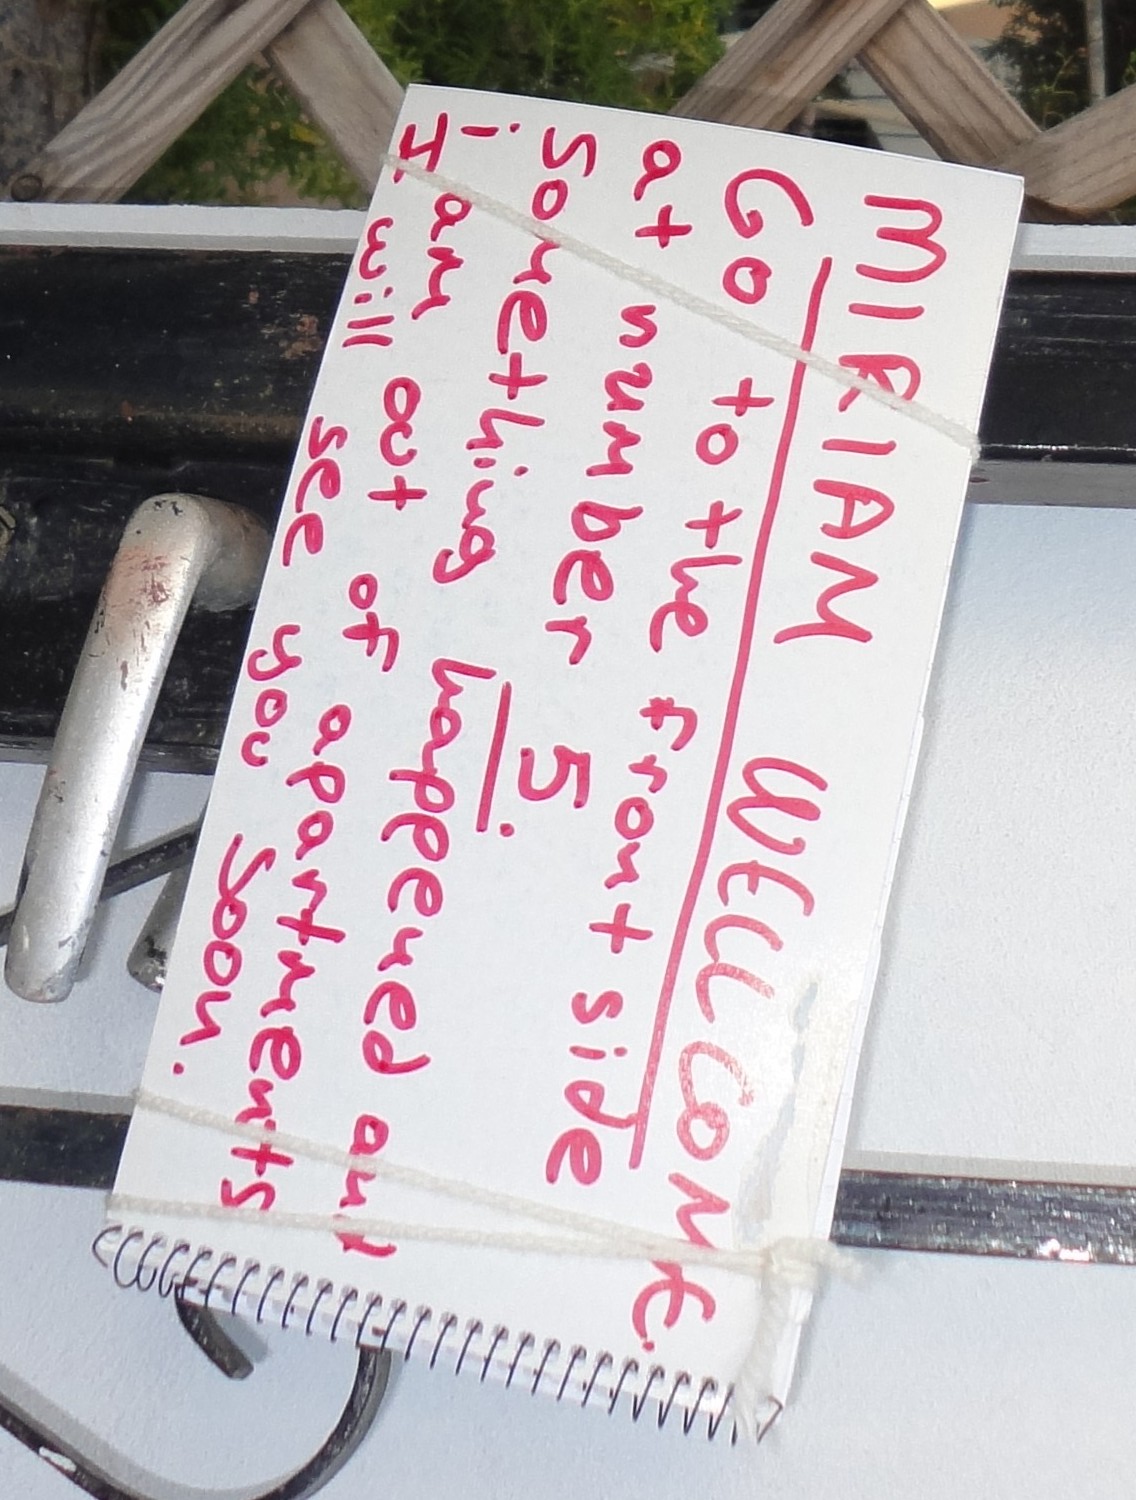 MIRIAM WELLCOME.
Go to the front side
at number 5.
Something hapened and
i. I am out of apartments
I will see you soon.